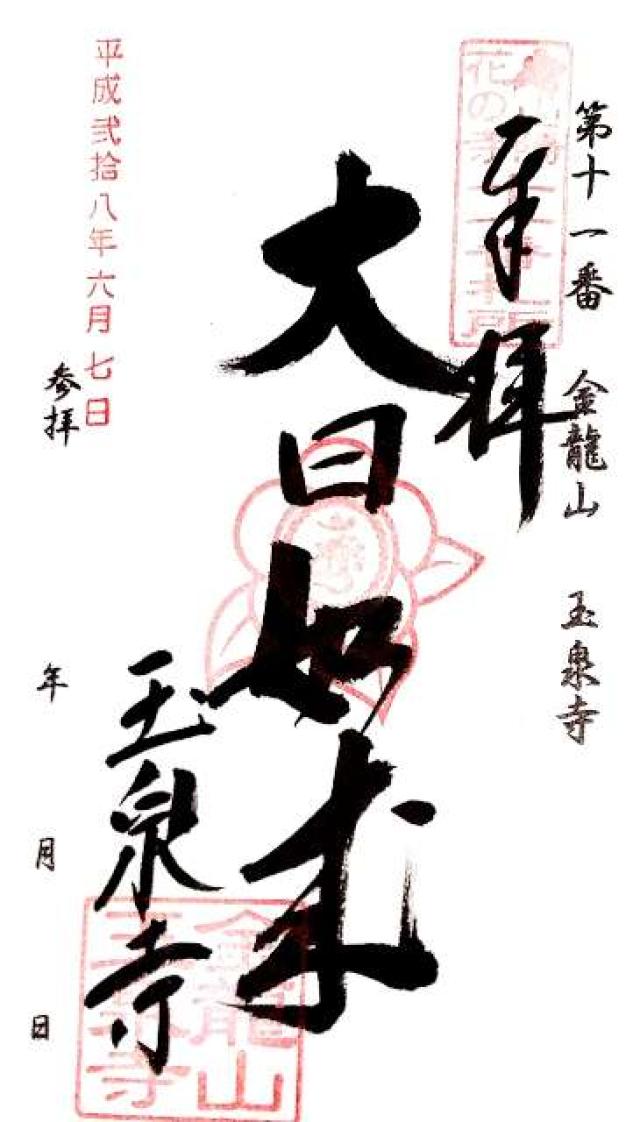 第十一番 金龍山 玉泉寺
奉拝
花の寺十一番札所
大日如来
玉泉寺
金龍山
玉泉寺
平成弐拾八年六月七日
参拝
年 月 日